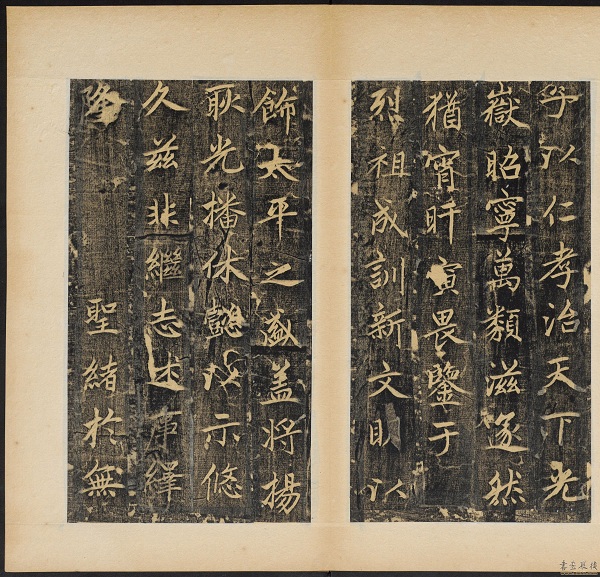 子以仁孝治天下光
嶽昭寧萬類滋遂然
猶宵旰寅畏鑒于
烈祖成訓新文眀以
飾太平之盛蓋將揚
耿光播休懿以示悠
久兹非繼志述事繹
隆聖緒於無